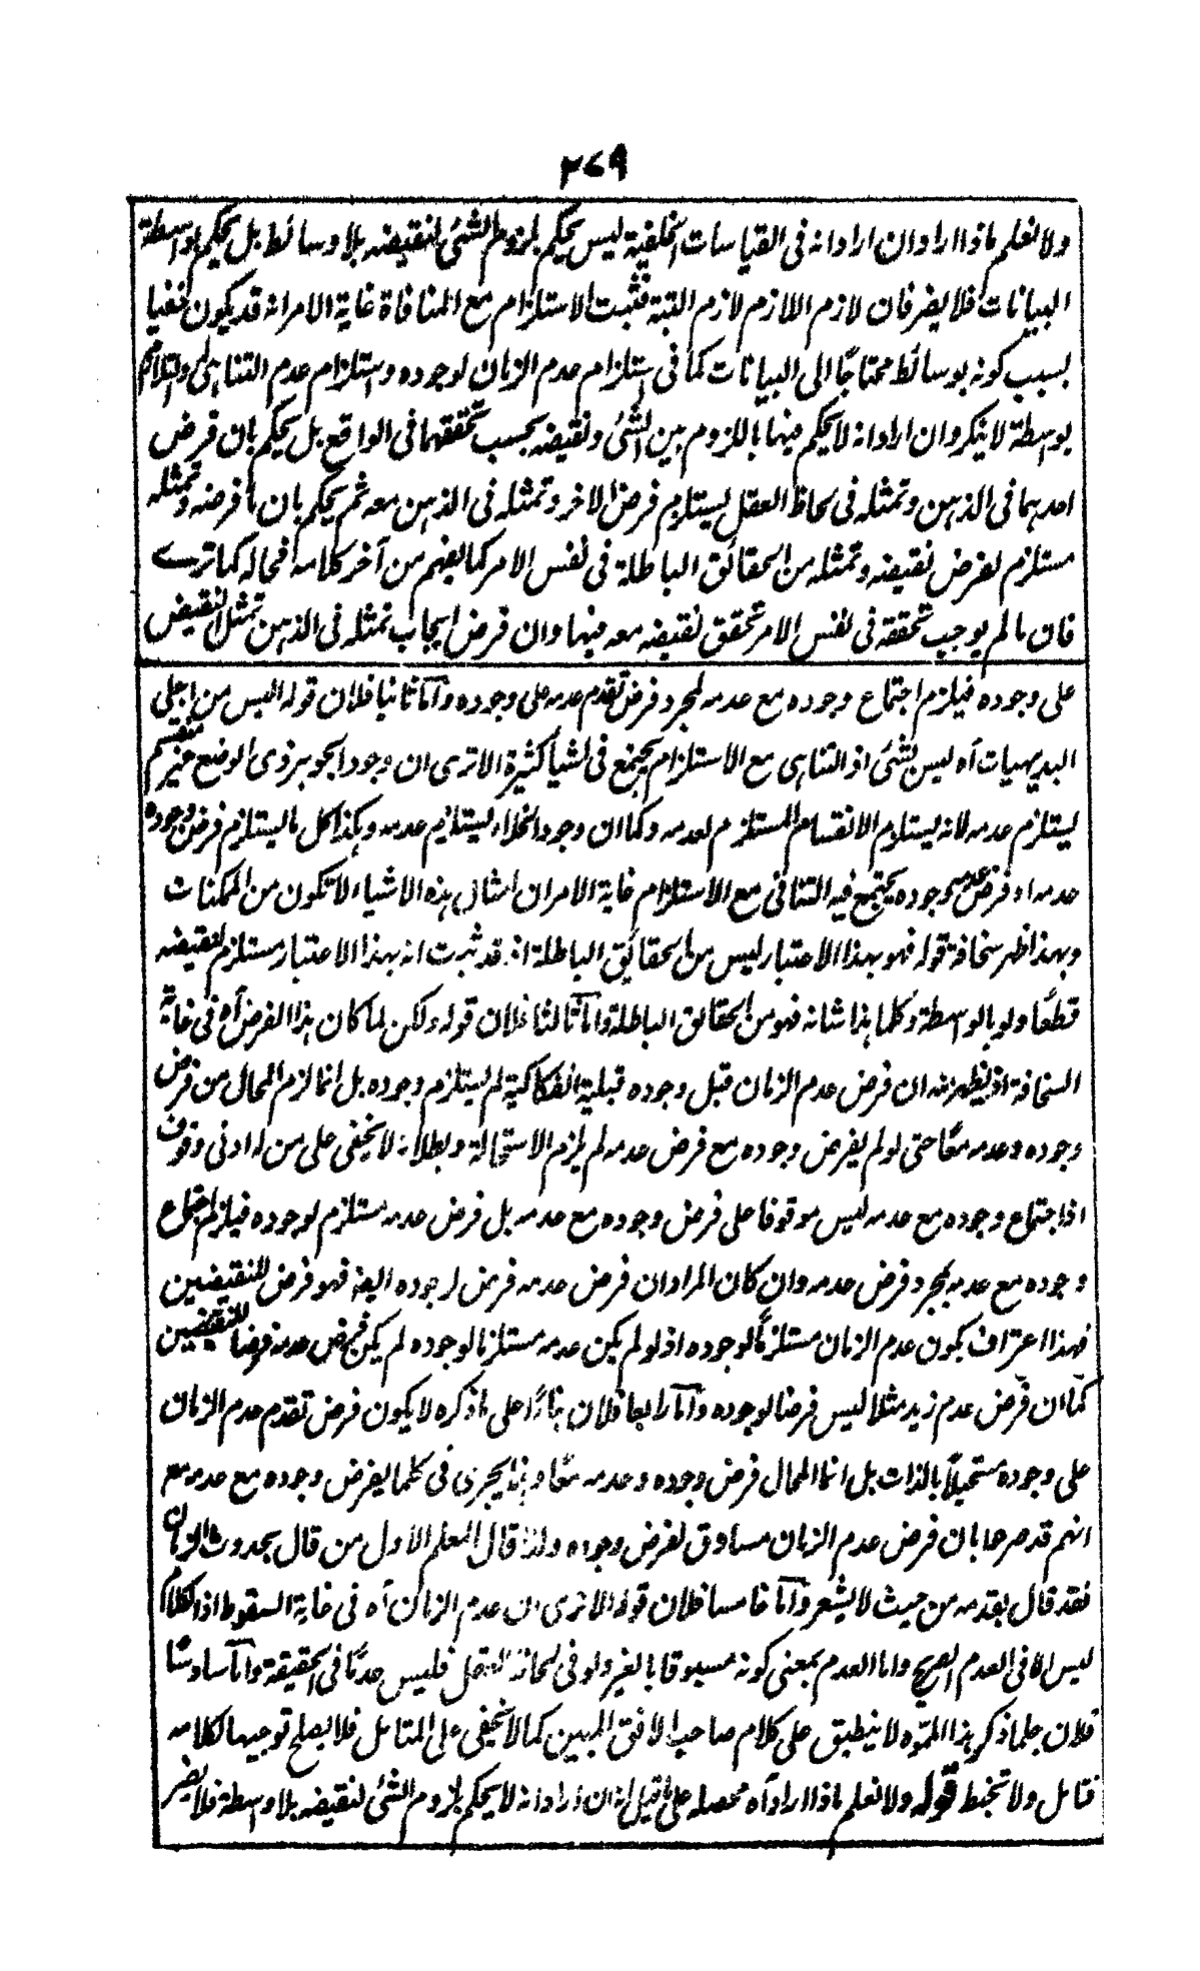 ٢٧٩
ولا نعلم ماذا اراد وان اراد انه فى القياسات الخلفية ليس يحكم بلزوم الشئ لنقيضه بلا وسائط بل يحكم بواسطة
البيانات فلا يضر فان لازم اللازم لازم البتة فثبت الاستلزام مع المنافاة غاية الامر انه قد يكون خفيا
بسبب كونه بوسائط محتاجًا الى البيانات كما فى استلزام عدم الزمان لوجوده واستلزام عدم التناهى والتلازم
بوسطة لا ينكر وان اراد انه لا يحكم فيها باللزوم بين الشئ ونقيضه بحسب تحققهما فى الواقع بل يحكم بان فرض
احدهما فى الذهن وتمثله فى لحاظ العقل يستلزم فرض الاخر وتمثله فى الذهن معه ثم يحكم بان ما فرضه وتمثله
مستلزم لفرض نقيضه وتمثله من الحقائق الباطلة فى نفس الامر كما يفهم من آخر كلامه فحاله كما ترے
فان ما لم يوجب تحققه فى نفس الامر تحقق نقيضه معه فيها وان فرض ايجاب تمثله فى الذهن تمثل النقيض
على وجوده فيلزم اجتماع وجوده مع عدمه لمجرد فرض تقدم عدمه على وجوده واما ثانيا فلان قوله اليس من اجلى
البديهيات آه ليس بشئ اذ التناهى مع الاستلزام يجتمع فى اشيا كثيرة الا ترى ان وجود الجوهر ذى الوضع غير منقسم
يستلزم عدمه لانه يستلزم الانقسام المستلزم لعدمه وكما ان وجود الخلاء يستلزم عدمه وهكذا كل ما يستلزم فرض وجوده
عدمه او فرض عدمه وجوده يجتمع فيه التنافى مع الاستلزام غاية الامر ان امثال هذه الاشياء لا تكون من الممكنات
وبهذا ظهر سخافة قوله فهو بهذا الاعتبار ليس من الحقائق الباطلة اذ قد ثبت انه بهذا الاعتبار مستلزم لنقيضه
قطعًا ولو بالوسطة وكلما هذا شانه فهو من الحقائق الباطلة واما ثالثا فلان قوله ولكن لما كان هذا الفرض آه فى غاية
السخافة اذ يظهر منه ان فرض عدم الزمان قبل وجوده قبلية انفكاكية لم يستلزم وجوده بل انما لزم المحال من فرض
وجوده وعدمه معًا حتى لو لم يفرض وجوده مع فرض عدمه لم يلزم الاستحالة وبطلانه لا يخفى على من له ادنى وقوف
اذ اجتماع وجوده مع عدمه ليس موقوفا على فرض وجوده مع عدمه بل فرض عدمه مستلزم لوجوده فيلزم اجتماع
وجوده مع عدمه بمجرد فرض عدمه وان كان المراد ان فرض عدمه فرض لوجوده ايضا فهو فرض للنقيضين
فهذا اعتراف بكون عدم الزمان مستلزمًا لوجوده اذ لو لم يكن عدمه مستلزما لوجوده لم يكن فرض عدمه فرضا للنقيضين
كما ان فرض عدم زيد مثلا ليس فرضا لوجوده واما رابعا فلان بناءًا على ما ذكره لا يكون فرض تقدم عدم الزمان
على وجوده مستحيلًا بالذات بل انما المحال فرض وجوده وعدمه معًا وهذا يجرى فى كلما يفرض وجوده مع عدمه مع
انهم قد صرحوا بان فرض عدم الزمان مساوق لفرض وجوده ولذا قال المعلم الاول من قال بحدوث الزمان
فقد قال بقدمه من حيث لا يشعر واما خامسا فلان قوله الا ترى ان عدم الزمان آه فى غاية السقوط اذ الكلام
ليس الا فى العدم الصريح واما العدم بمعنى كونه مسبوقا بالغير ولو فى لحاظ العقل فليس عدمًا فى الحقيقة واما سادسًا
فلان جل ما ذكر هذا المموّه لا ينطبق على كلام صاحب الافق المبين كما لا يخفى على المتامل فلا يصلح توجيها لكلامه
فتامل ولا تخبط قوله ولا نعلم ماذا اراد آه محصله على ما قيل انه ان اراد انه لا يحكم بلزوم الشئ لنقيضه بلا وسطة فلا يضر